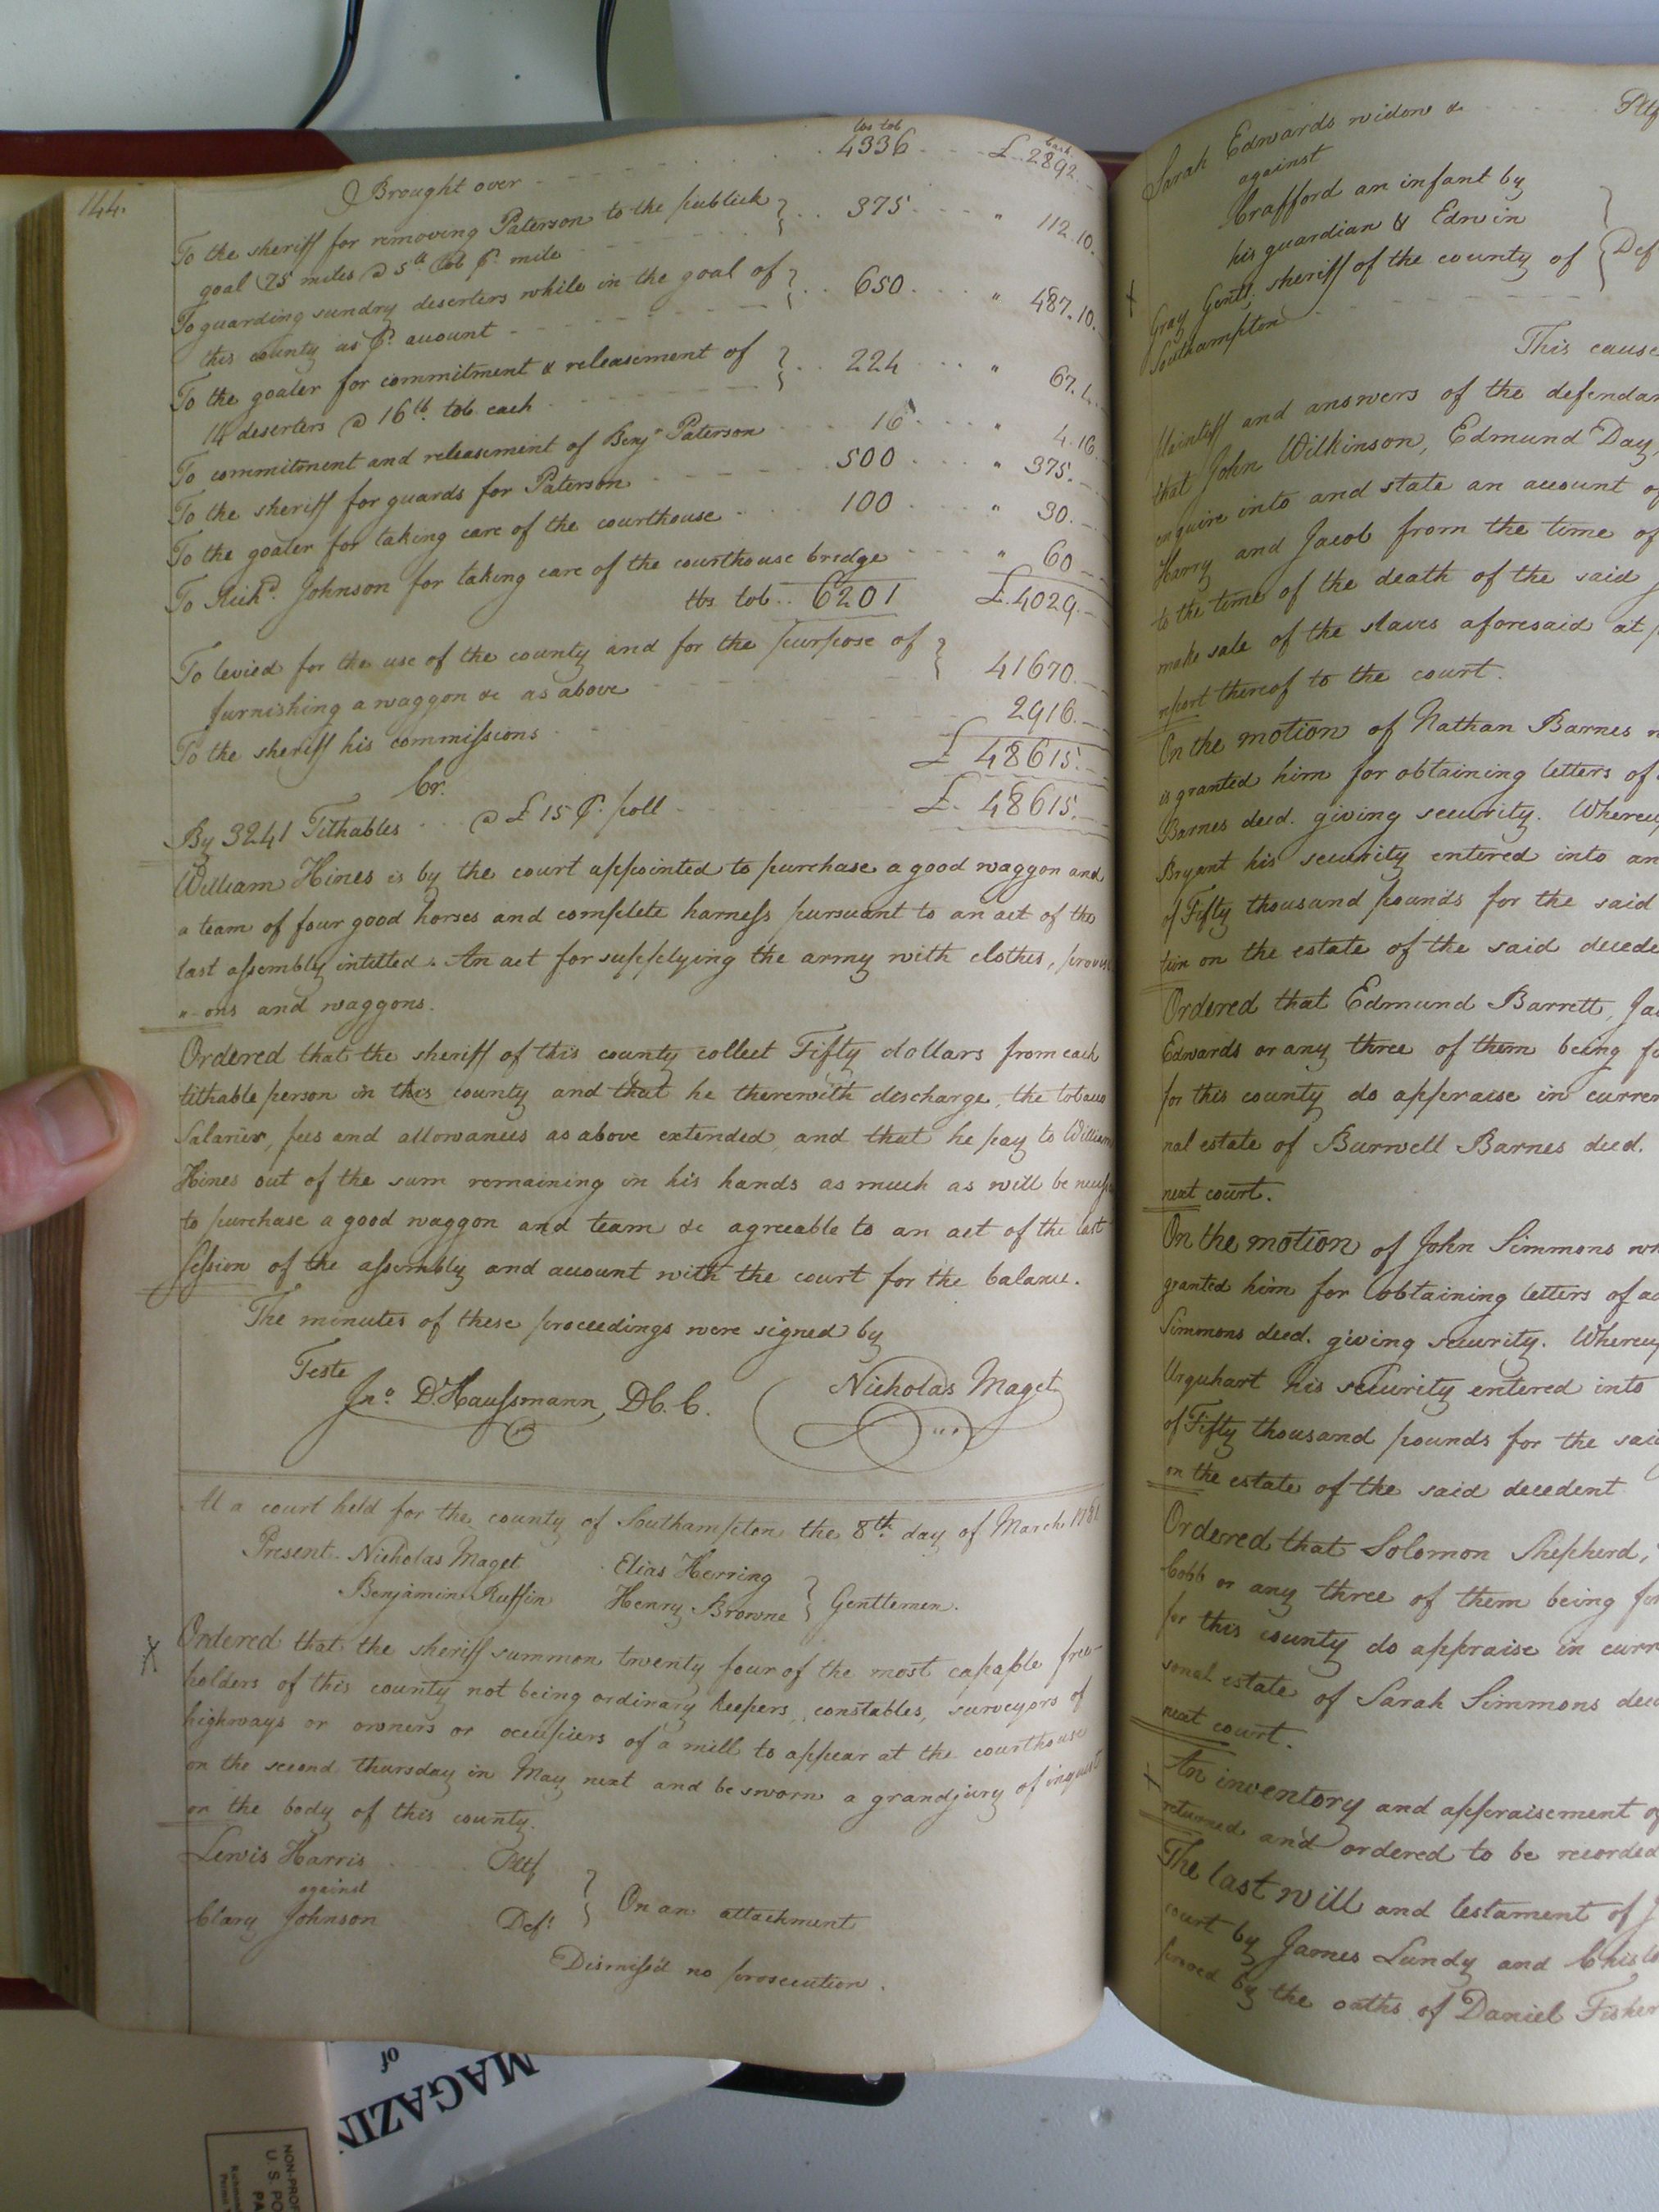 144.
lbs tob cash
Brought over 4336 £ 2892.
To the sheriff for removing Paterson to the publick } 375 " 112.10.
goal 75 miles @ 5lb tob ⅌ mile
To guarding sundry deserters while in the goal of } 650 " 487.10.
this county as ⅌ account
To the goaler for commitment & releasement of } 224 " 67.4.
14 deserters @ 16lb. tob. each
To commitment and releasement of Benja Paterson 16 " 4.16.
To the sheriff for guards for Paterson 500 " 375.
To the goaler for taking care of the courthouse 100 " 30.
To Richd. Johnson for taking care of the courthouse bredge " 60
lbs. tob. 6201 £.4029.
To levied for the use of the county and for the purpose of } 41670.
furnishing a waggon &c as above
To the sheriff his commissions 2916.
£ 48615.
Cr.
By 3241 Tithables @ £15 ⅌ poll £. 48615.
William Hines is by the court appointed to purchase a good waggon and
a team of four good horses and complete harness pursuant to an act of the
last assembly intitled. An act for supplying the army with clothes, provisi
" ons and waggons.
Ordered that the sheriff of this county collect Fifty dollars from each
tithable person in this county and that he therewith descharge, the tobacco
Salaries, fees and allowances as above extended, and that he pay to William
Hines out of the sum remaining in his hands as much as will be
to purchase a good waggon and team &c agreeable to an act of the last
session of the assembly and account with the court for the balance.
The minutes of these proceedings were signed by
Teste
Jno. D'Haussmann, DC.C. Nicholas Maget
At a court held for the county of Southampton the 8th day of March 1781
Present. Nicholas Maget Elias Herring
Benjamin Ruffin Henry Browne } Gentlemen.
Ordered that the sheriff summon twenty four of the most capable free-
holders of this county not being ordinary keepers, constables, surveyors of
highways or owners or occupiers of a mill to appear at the courthouse
on the second thursday in May next and be sworn a grandjury of inquest
on the body of this county.
Lewis Harris Pltf
against } On an attachment
Clary Johnson Deft
Dismiss'd no prosecution.
Sarah Edwards widow & Pltf
against
Crafford an infant by
his guardian & Edwin
Gray Gentl. sheriff of the county of } Def
Southampton
This cause
Plaintiff and answers of the defendan
that John Wilkinson, Edmund Day,
enquire into and state an account of
Harry and Jacob from the time of
to the time of the death of the said
make sale of the slaves aforesaid at
report thereof to the court.
On the motion of Nathan Barnes
is granted him for obtaining letters of
Barnes decd. giving security. Whereup
Bryant his security entered into an
of Fifty thousand pounds for the said
tion on the estate of the said decede
Ordered that Edmund Barrett, Ja
Edwards or any three of them being fi
for this county do appraise in curren
nal estate of Burwell Barnes decd.
next court.
On the motion of John Simmons wh
granted him for obtaining letters of ad
Simmons decd. giving security. Whereup
Urquhart his security entered into
of Fifty thousand pounds for the said
on the estate of the said decedent
Ordered that Solomon Shepherd,
Cobb or any three of them being fir
for this county do appraise in curr
sonal estate of Sarah Simmons dec
next court.
An inventory and appraisement of
returned and ordered to be recorded
The last will and testament of J
court by James Lundy and
proved by the oaths of Daniel Fisher
MAGAZIN
of
NON-PROF
U. S. PO
PA
Richmond
Permit